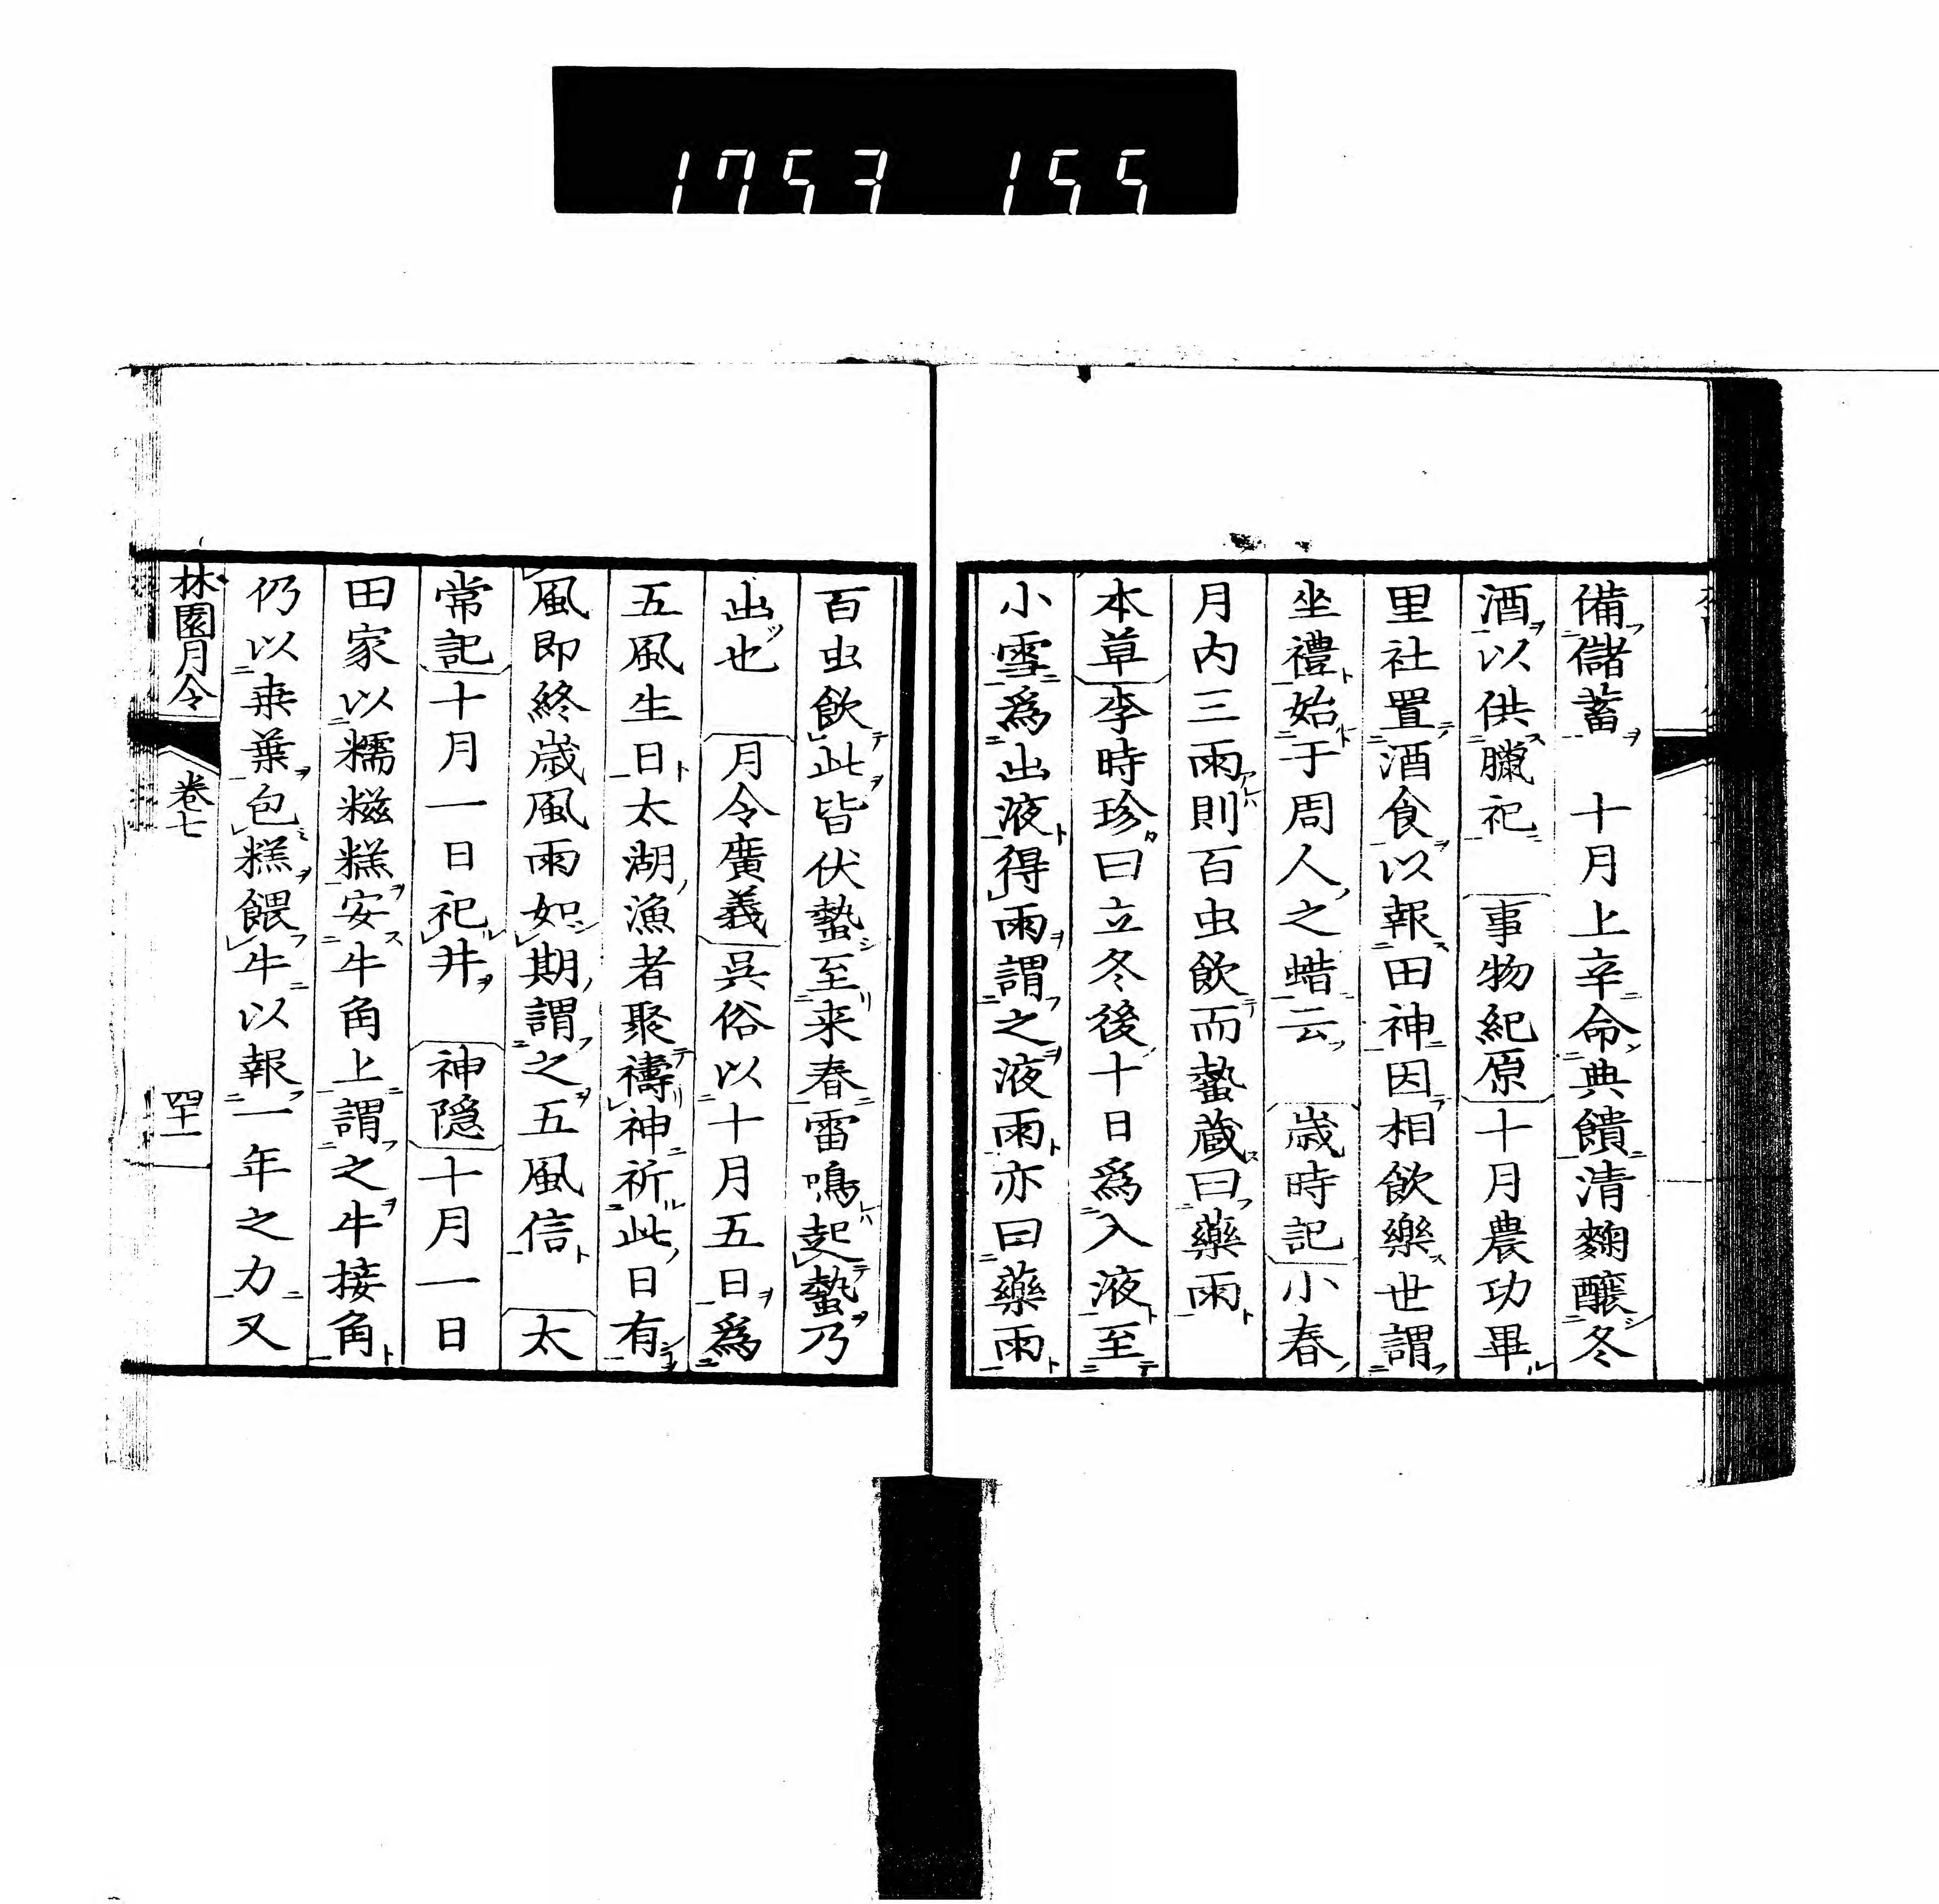 1753 155
備儲蓄　十月上辛命典饋清麴醸冬
酒以供臘祀　事物紀原十月農功畢
里社置酒食以報田神因相飲樂世謂
坐禮始于周人之蜡云　歳時記小春
月内三雨則百虫飲而蟄蔵曰藥雨
本草李時珍曰立冬後十日爲入液至
小雪爲出液得雨謂之液雨亦曰藥雨
百虫飲此皆伏蟄至来春雷鳴起蟄乃
出也　月令廣義呉俗以十月五日爲
五風生日太湖漁者聚禱神祈此日有
風即終歳風雨如期謂之五風信　太
常記十月一日祀井　神隠十月一日
田家以糯糍糕安牛角上謂之牛接角
仍以菜葉包糕餵牛以報一年之力又
林園月令　卷七　四十一